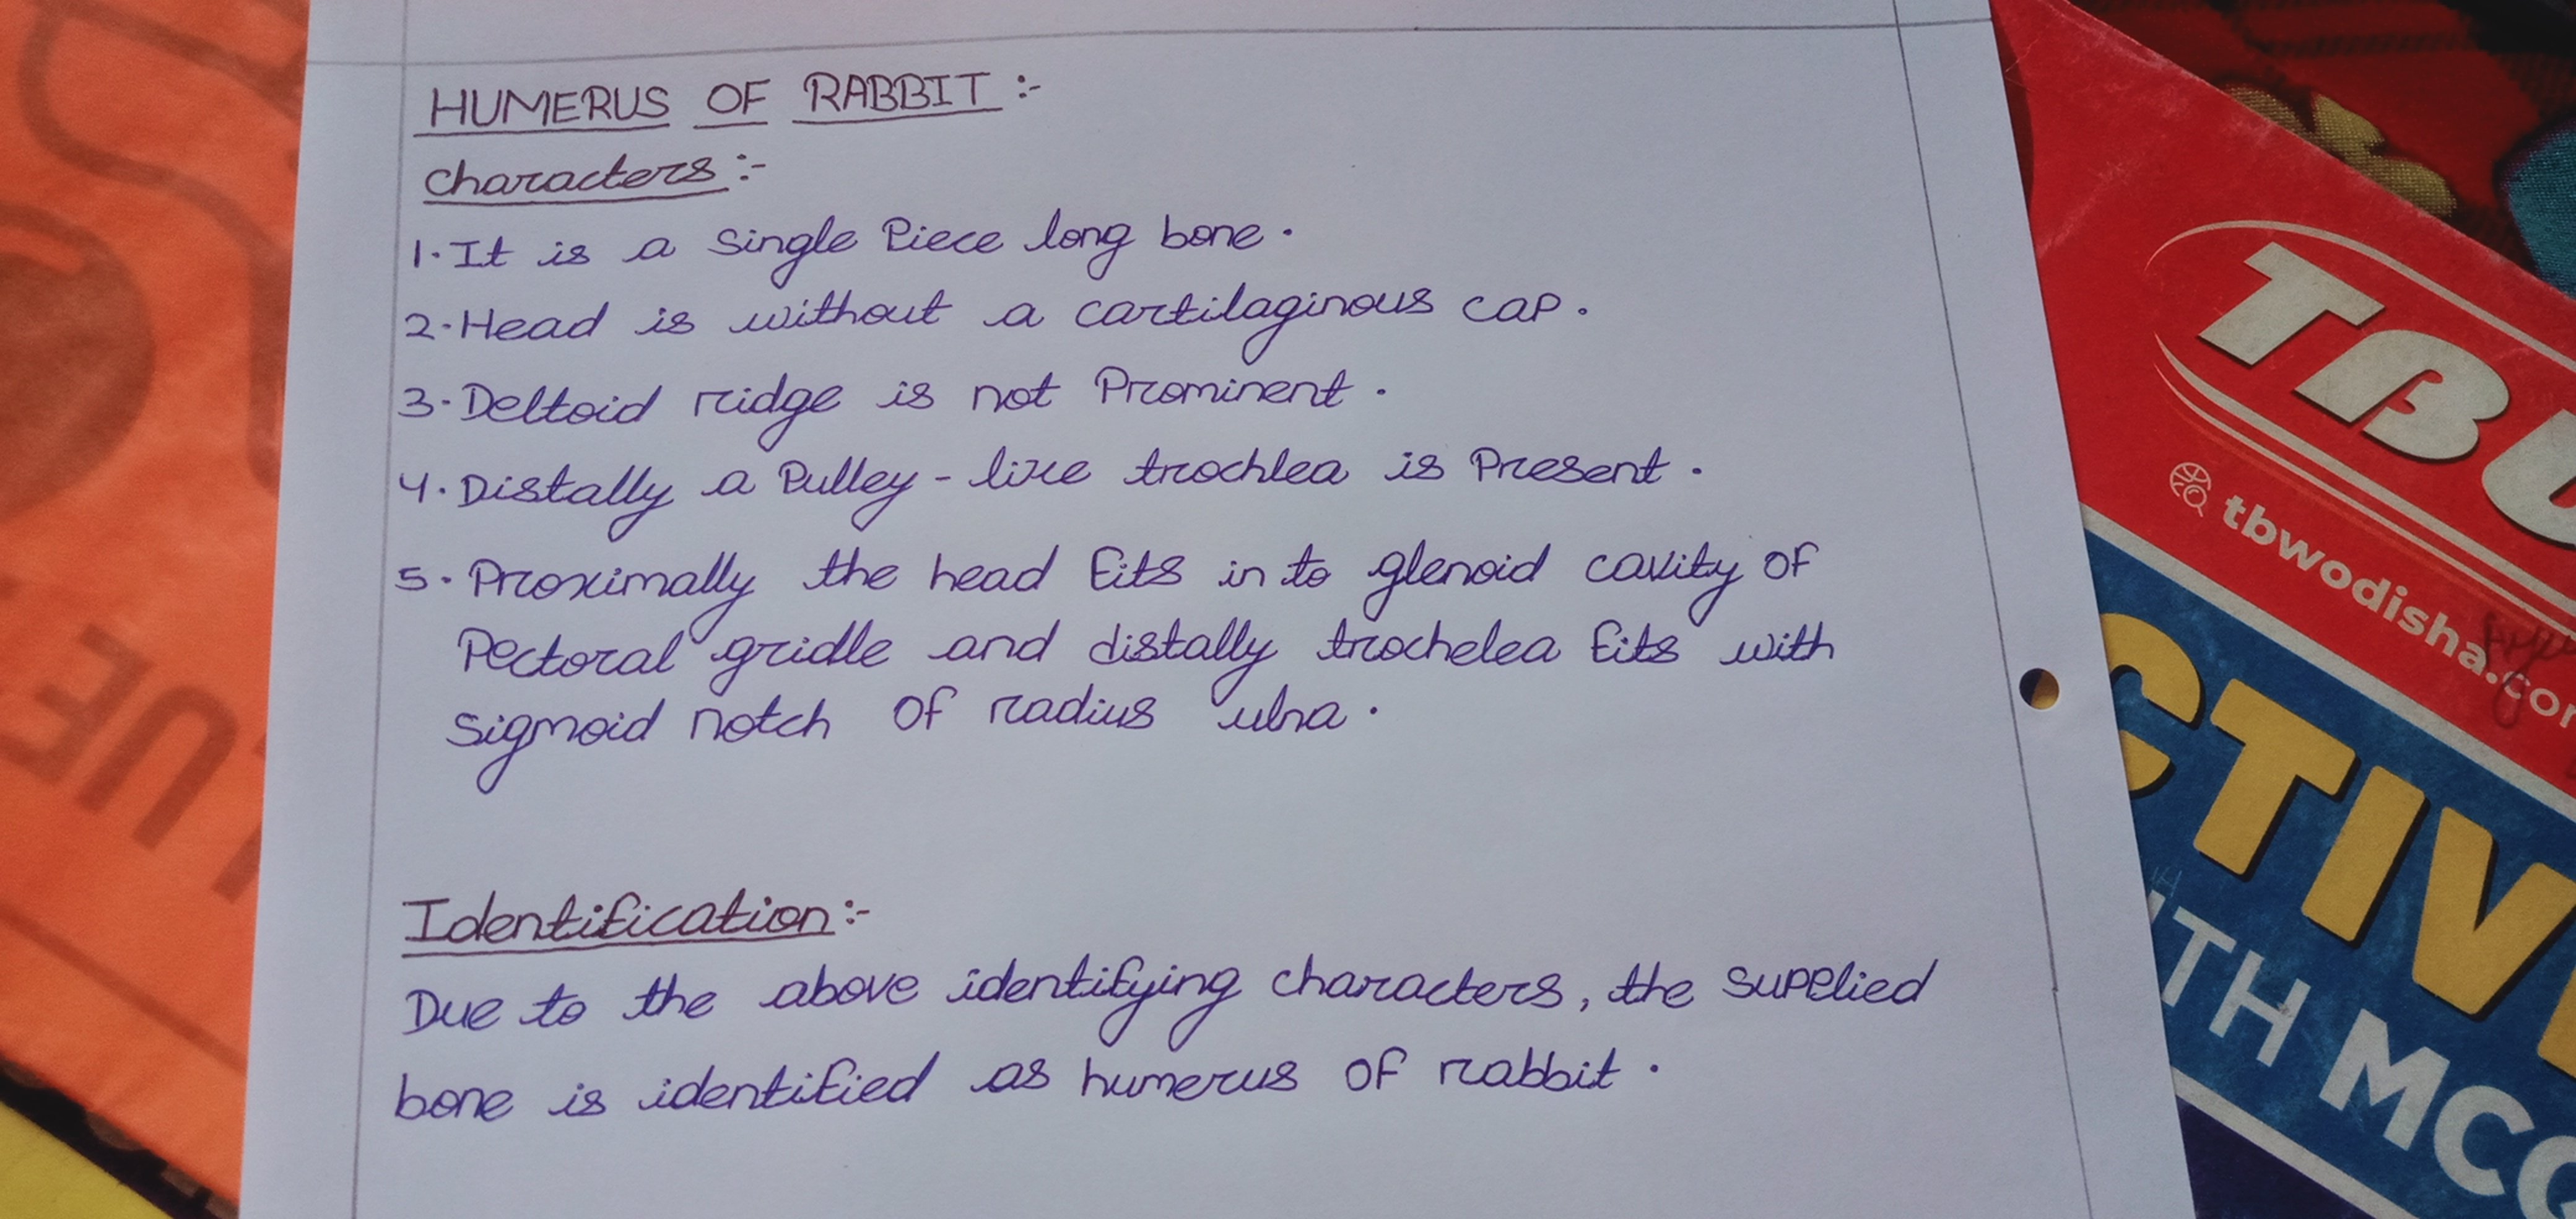 HUMERUS OF RABBIT :-
characters :-
1. It is a single Piece long bone.
2. Head is without a cartilaginous cap.
3. Deltoid ridge is not Prominent.
4. Distally a Pulley - like trochlea is Present.
5. Proximally the head fits in to glenoid cavity of
Pectoral gridle and distally trochelea fits with
sigmoid notch of radius ulna.
Identification :-
Due to the above identifying characters, the supplied
bone is identified as humerus of rabbit.
TB
tbwodisha.com
CTIV
ITH MCQ
UE